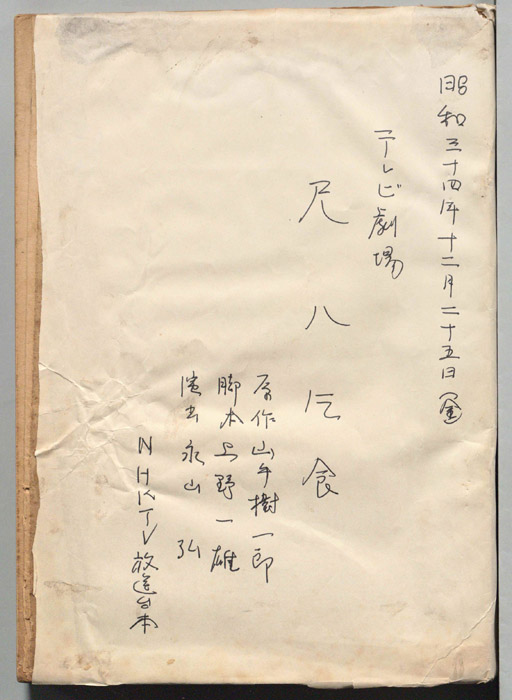 昭和三十四年十二月二十五日㊎
テレビ劇場
尺八乞食
原作山手樹一郎
脚本上野一雄
演出永山弘
NHKTV放送台本